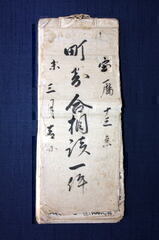 宝暦十三癸
町方合相談一件
未三月吉日